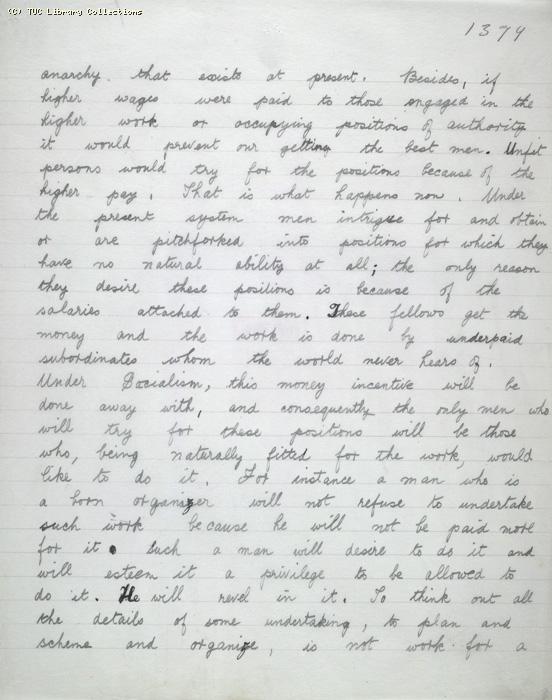 (C) TUC Library Collections
1374
anarchy that exists at present. Besides, if
higher wages were paid to those engaged in the
higher work or occupying positions of authority
it would prevent our getting the best men. Unfit
persons would try for the positions because of the
higher pay. That is what happens now. Under
the present system men intrigue for and obtain
or are pitchforked into positions for which they
have no natural ability at all; the only reason
they desire these positions is because of the
salaries attached to them. These fellows get the
money and the work is done by underpaid
subordinates whom the world never hears of.
Under Socialism, this money incentive will be
done away with, and consequently the only men who
will try for these positions will be those
who, being naturally fitted for the work, would
like to do it. For instance a man who is
a born organizer will not refuse to undertake
such work because he will not be paid more
for it. Such a man will desire to do it and
will esteem it a privilege to be allowed to
do it. He will revel in it. To think out all
the details of some undertaking, to plan and
scheme and organize, is not work for a